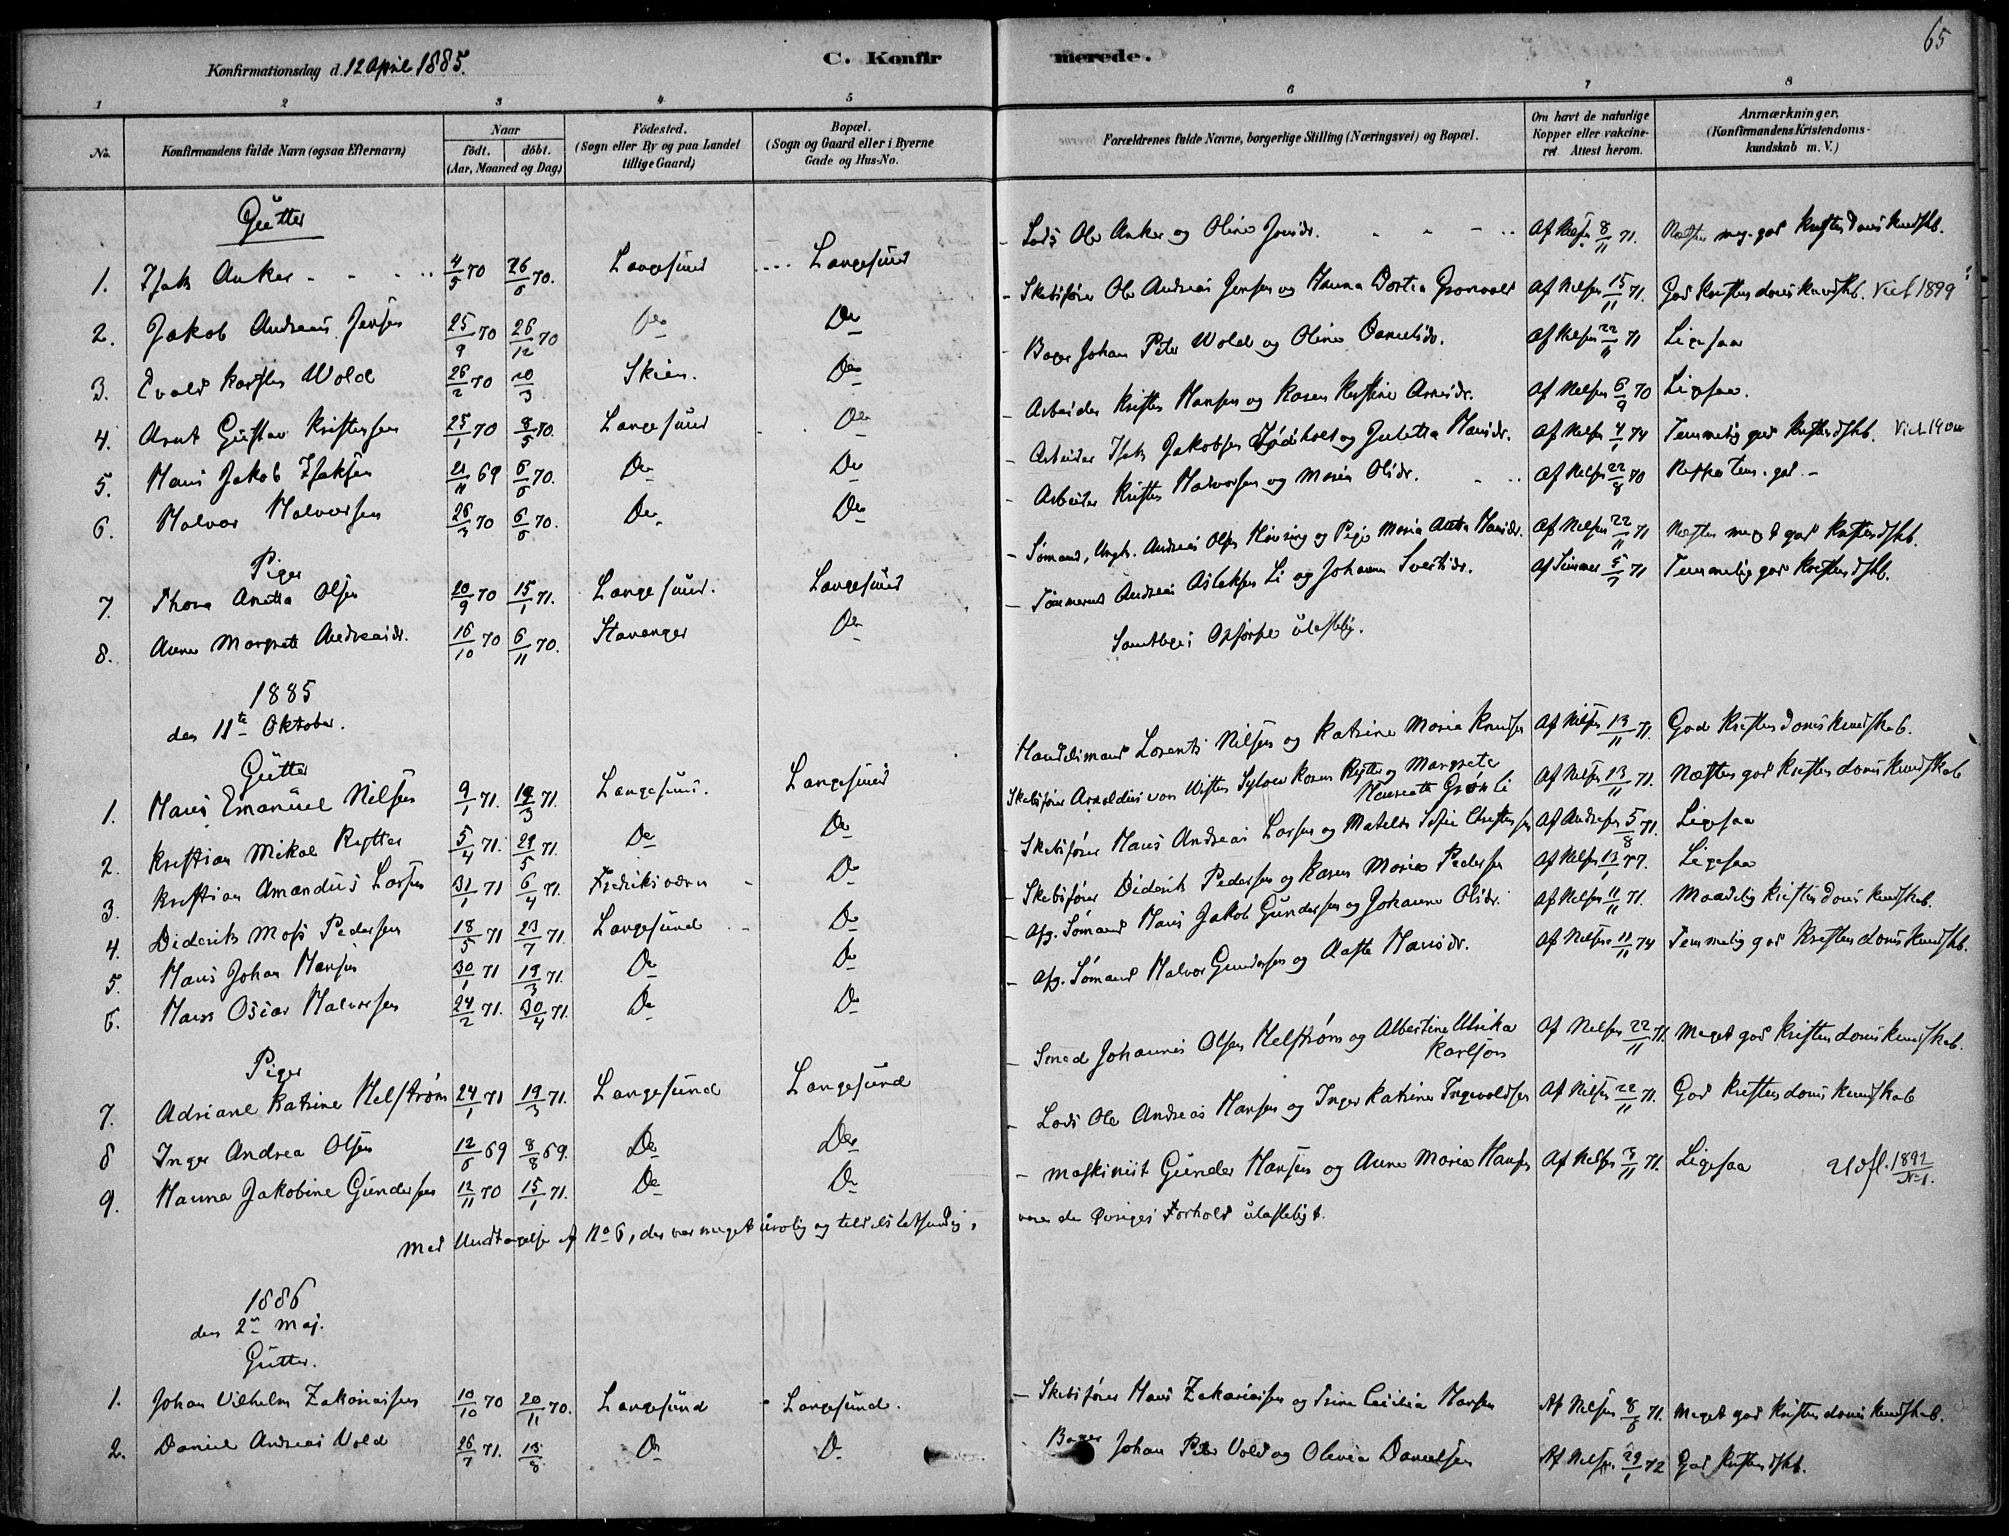 65
Konfirmationsdag d. 12 April 1885.
C. Konfirmerede.
1 2 3 4 5 6 7 8
No.
Konfirmandens fulde Navn (ogsaa Efternavn)
Naar
födt. döbt.
(Aar, Maaned og Dag)
Födested.
(Sogn eller By og paa Landet
tillige Gaard)
Bopæl.
(Sogn og Gaard eller i Byerne
Gade og Hus-No.
Forældrenes fulde Navne, borgerlige Stilling (Næringsvei) og Bopæl.
Om havt de naturlige
Kopper eller vakcine-
ret Attest herom.
Anmærkninger.
(Konfirmandens Kristendoms-
kundskab m. V.)
Gütter
1. Isak Anker 4/5 70 26/6 70. Langesund Langesund – Lods Ole Anker og Oline Jonsdr. Af Nilsen 8/11 71. Næsten meg. god Kristendomskundskb.
2. Jakob Andreas Jensen 25/9 70 26/12 70 Do Do – Skibsfører Ole Andreas Jensen og Hanna Dortia Grønvold Af Nilsen 15/11 71. God Kristendomskundskb. Viel 1899
3. Evald Karsten Wold 26/2 70 20/3 Skien. Do – Bager Johan Peter Wold og Oline Danielsdr. Af Nilsen 22/11 71 Ligesaa
4. Arnt Gustav Kristensen 25/1 70 8/5 70. Langesund Do – Arbeider Kristen Hansen og Karen Kirstine Arnesdr. Af Nilsen 6/9 70 Ligesaa.
5. Hans Jakob Isaksen 21/11 69 6/6 70. Do Do – Arbeider Isak Jakobsen Jødholt og Juletta Hansdr. Af Nilsen 4/1 74 Temmelig god Kristendskb. Viel 1900
6. Halvor Halvorsen 26/3 70 6/6 70. Do Do – Arbeider Kristen Halvorsen og Maria Olsdr. Af Nilsen 22/8 70 Neppe Tem. god –
Piger
7. Thora Anetta Olsen 20/9 70 15/1 71. Langesund. Langesund – Sømand, Ungk. Andreas Olsen Høvsing og Pige Maria Anetta Hansdr. Af Nilsen 22/11 71 Næsten meget god Kristendskb.
8. Anne Margrete Andreasdr. 16/10 70 6/11 70. Stavanger Do – Tømmermd Andreas Aslaksen Li og Johanne Sverdsdr. Af Simmer 5/7 71 Temmelig god Kristendskb.
Samtliges Opførsel ulastelig.
1885
den 11te Oktober.
Gütter
1. Hans Emanuel Nilsen 9/1 71. 19/3 71. Langesund. Langesund Handelsmand Lorents Nilsen og Katrine Maria Knudsen Af Nilsen 13/11 71. God Kristendomskundskab.
2. Kristian Mikal Rytter 5/4 71. 29/5 71. Do Do Skibsfører Arnoldus von Westen Sylow Koren Rytter og Margrete
Haurentte Grønli Af Nilsen 13/11 71. Næsten god Kristendomskundskab
3. Kristian Amandus Larsen 31/1 71 6/4 71. Fredriksværn Do – Skibsfører Hans Andreas Larsen og Matilde Sofie Christensen Af Andresen 5/8 71. Ligesaa
4. Diderik Moss Pedersen 18/5 71 23/7 71. Langesund Do – Skibsfører Diderik Pedersen og Karen Maria Pedersen Af Nilsen 13/1 77. Ligesaa
5. Hans Johan Hansen 30/1 71 19/3 71. Do Do – Afg. Sømand Hans Jakob Gundersen og Johanne Olsdr. Af Nilsen 11/11 71. Maadelig Kristendomskundskab.
6. Hans Oscar Halvorsen 24/2 71. 30/4 71. Do Do – Afg. Sømand Halvor Gundersen og Aaste Hansdr. Af Nilsen 11/11 74 Temmelig god Kristendomskundskb.
Piger
7. Adriane Katrine Helstrøm 24/1 71 19/3 71. Langesund Langesund – Smed Johannes Olsen Helstrøm og Albertine Ulrika
Karlson Af Nilsen 22/11 71. Meget god Kristendomskundskab.
8 Inger Andrea Olsen 12/6 69 8/8 69. Do Do – Lods Ole Andreas Hansen og Inger Katrine Ingevoldsen Af Nilsen 22/11 71. God Kristendomskundskab
9. Hanna Jakobine Gundersen 12/11 70 15/1 71. Do Do – Maskinist Gunder Hansen og Anne Maria Hansen Af Nilsen 3/11 71. Ligesaa Udfl. 1892 N 1.
Med Undtagelse af No 6, der var meget urolig og tildels letsindig, var de Øvriges Forhold ulasteligt.
1886
den 2en Maj.
Gütter.
1. Johan Vilhelm Zakariassen 10/10 70 20/11 70. Langesund Langesund. – Skibsfører Hans Zakariassen og Trine Cecilia Hansen Af Nilsen 8/8 71. Meget god Kristendomskundskab.
2. Daniel Andreas Vold 26/7 71. 13/8 Do Do Bager Johan Peter Vold og Olevia Danielsen Af Nilsen 29/1 72 God Kristendskb.